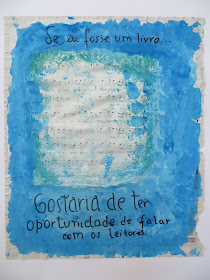 Se eu fosse um livro...
Gostaria de ter
oportunidade de falar
com os leitores